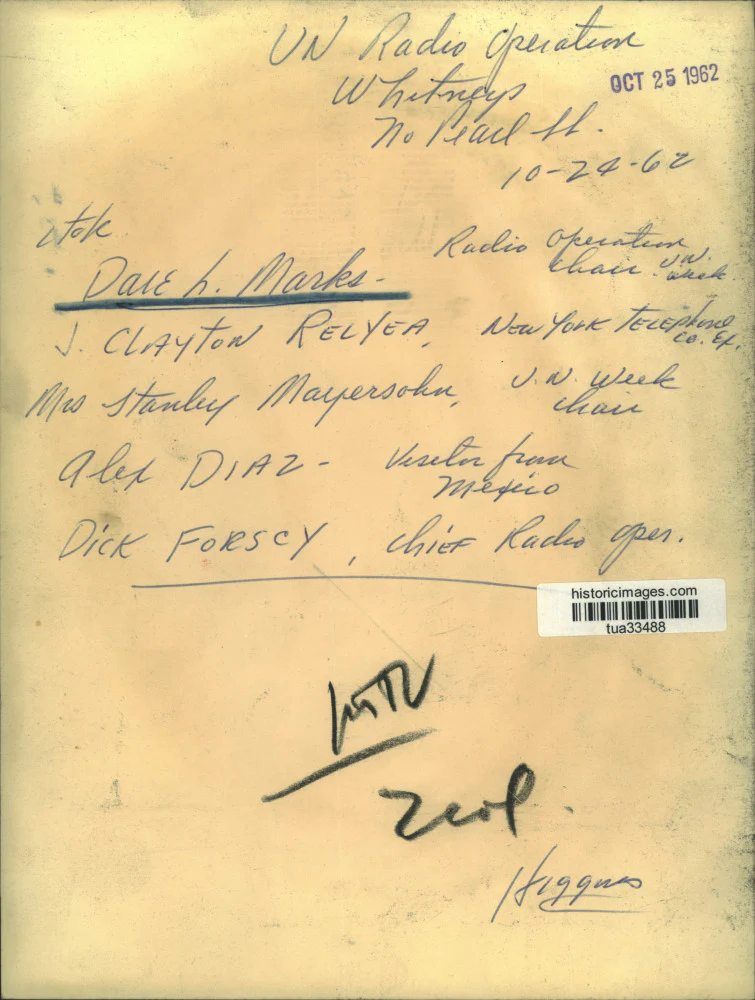 UN Radio Operation
Whitneys
No Pearl St.
10-24-62
OCT 25 1962
Dale L. Marks -
Radio Operation
Chair. U.N. Week
J. CLAYTON RELYEA, NEW YORK TELEPHONE
CO. EX.
Mrs Stanley Mayersohn, U.N. Week
Chair
Alex DIAZ - Visitor from
Mexico
DICK FORSCY, Chief Radio Oper.
historicimages.com
tua33488
2 col.
Higgins